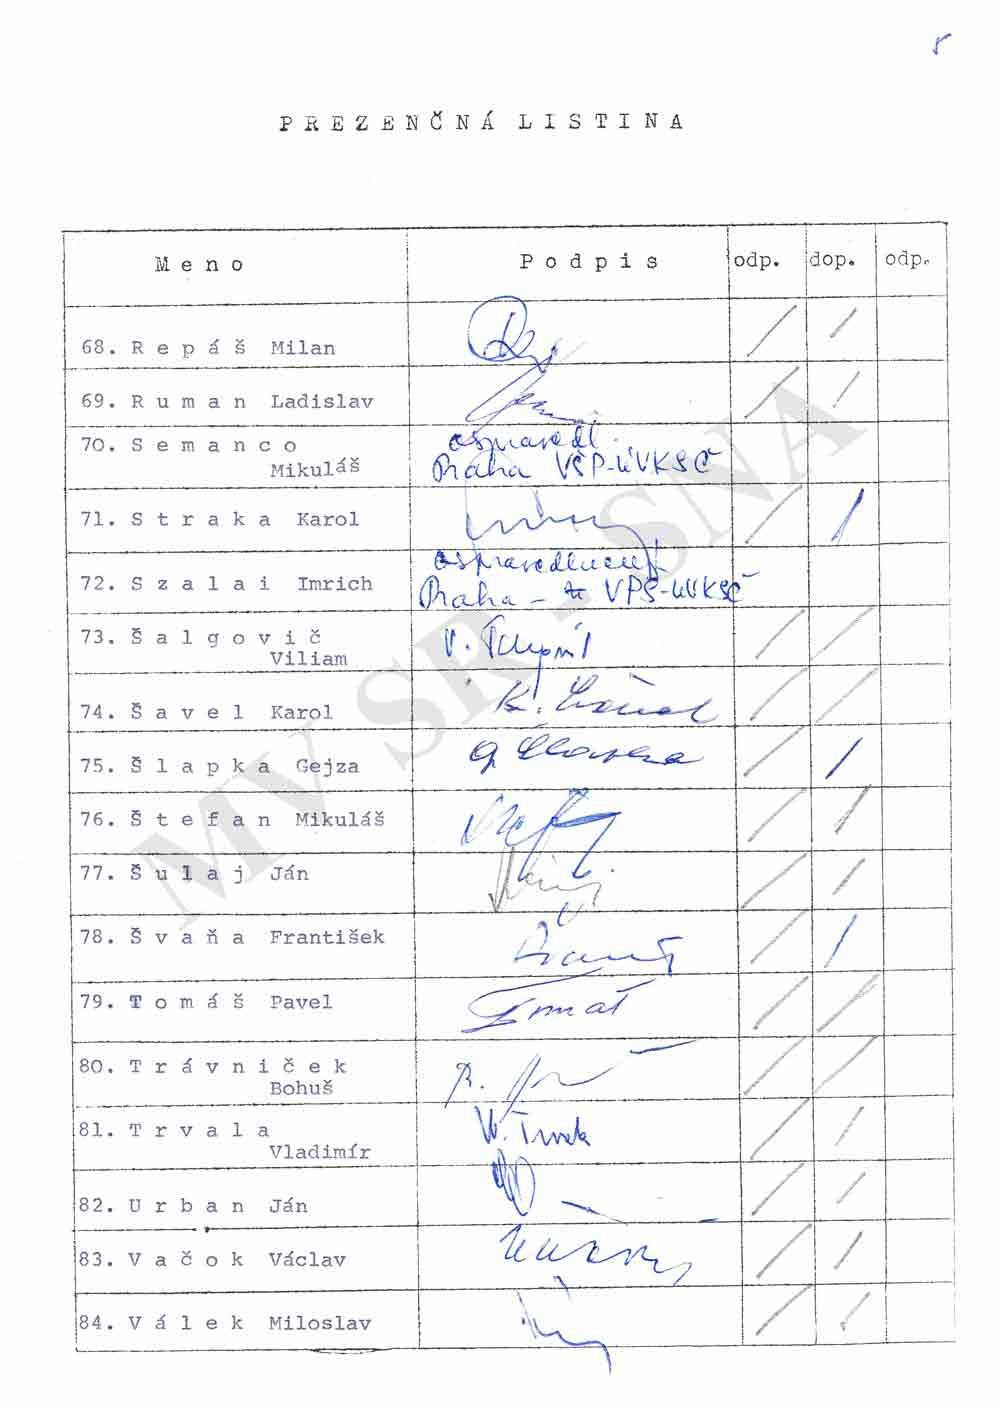 P R E Z E N Č N Á L I S T I N A
M e n o P o d p i s odp. dop. odp.
68. R e p á š Milan
69. R u m a n Ladislav
70. S e m a n c o ospravedl.
Mikuláš Praha VŠP-ÚVKSČ
71. S t r a k a Karol
72. S z a l a i Imrich Praha - VPŠ-ÚVKSČ
73. Š a l g o v i č
Viliam
74. Š a v e l Karol
75. Š l a p k a Gejza
76. Š t e f a n Mikuláš
77. Š u l a j Ján
78. Š v a ň a František
79. T o m á š Pavel Tomáš
80. T r á v n i č e k
Bohuš
81. T r v a l a
Vladimír
82. U r b a n Ján
83. V a č o k Václav
84. V á l e k Miloslav
MV SR - SNA